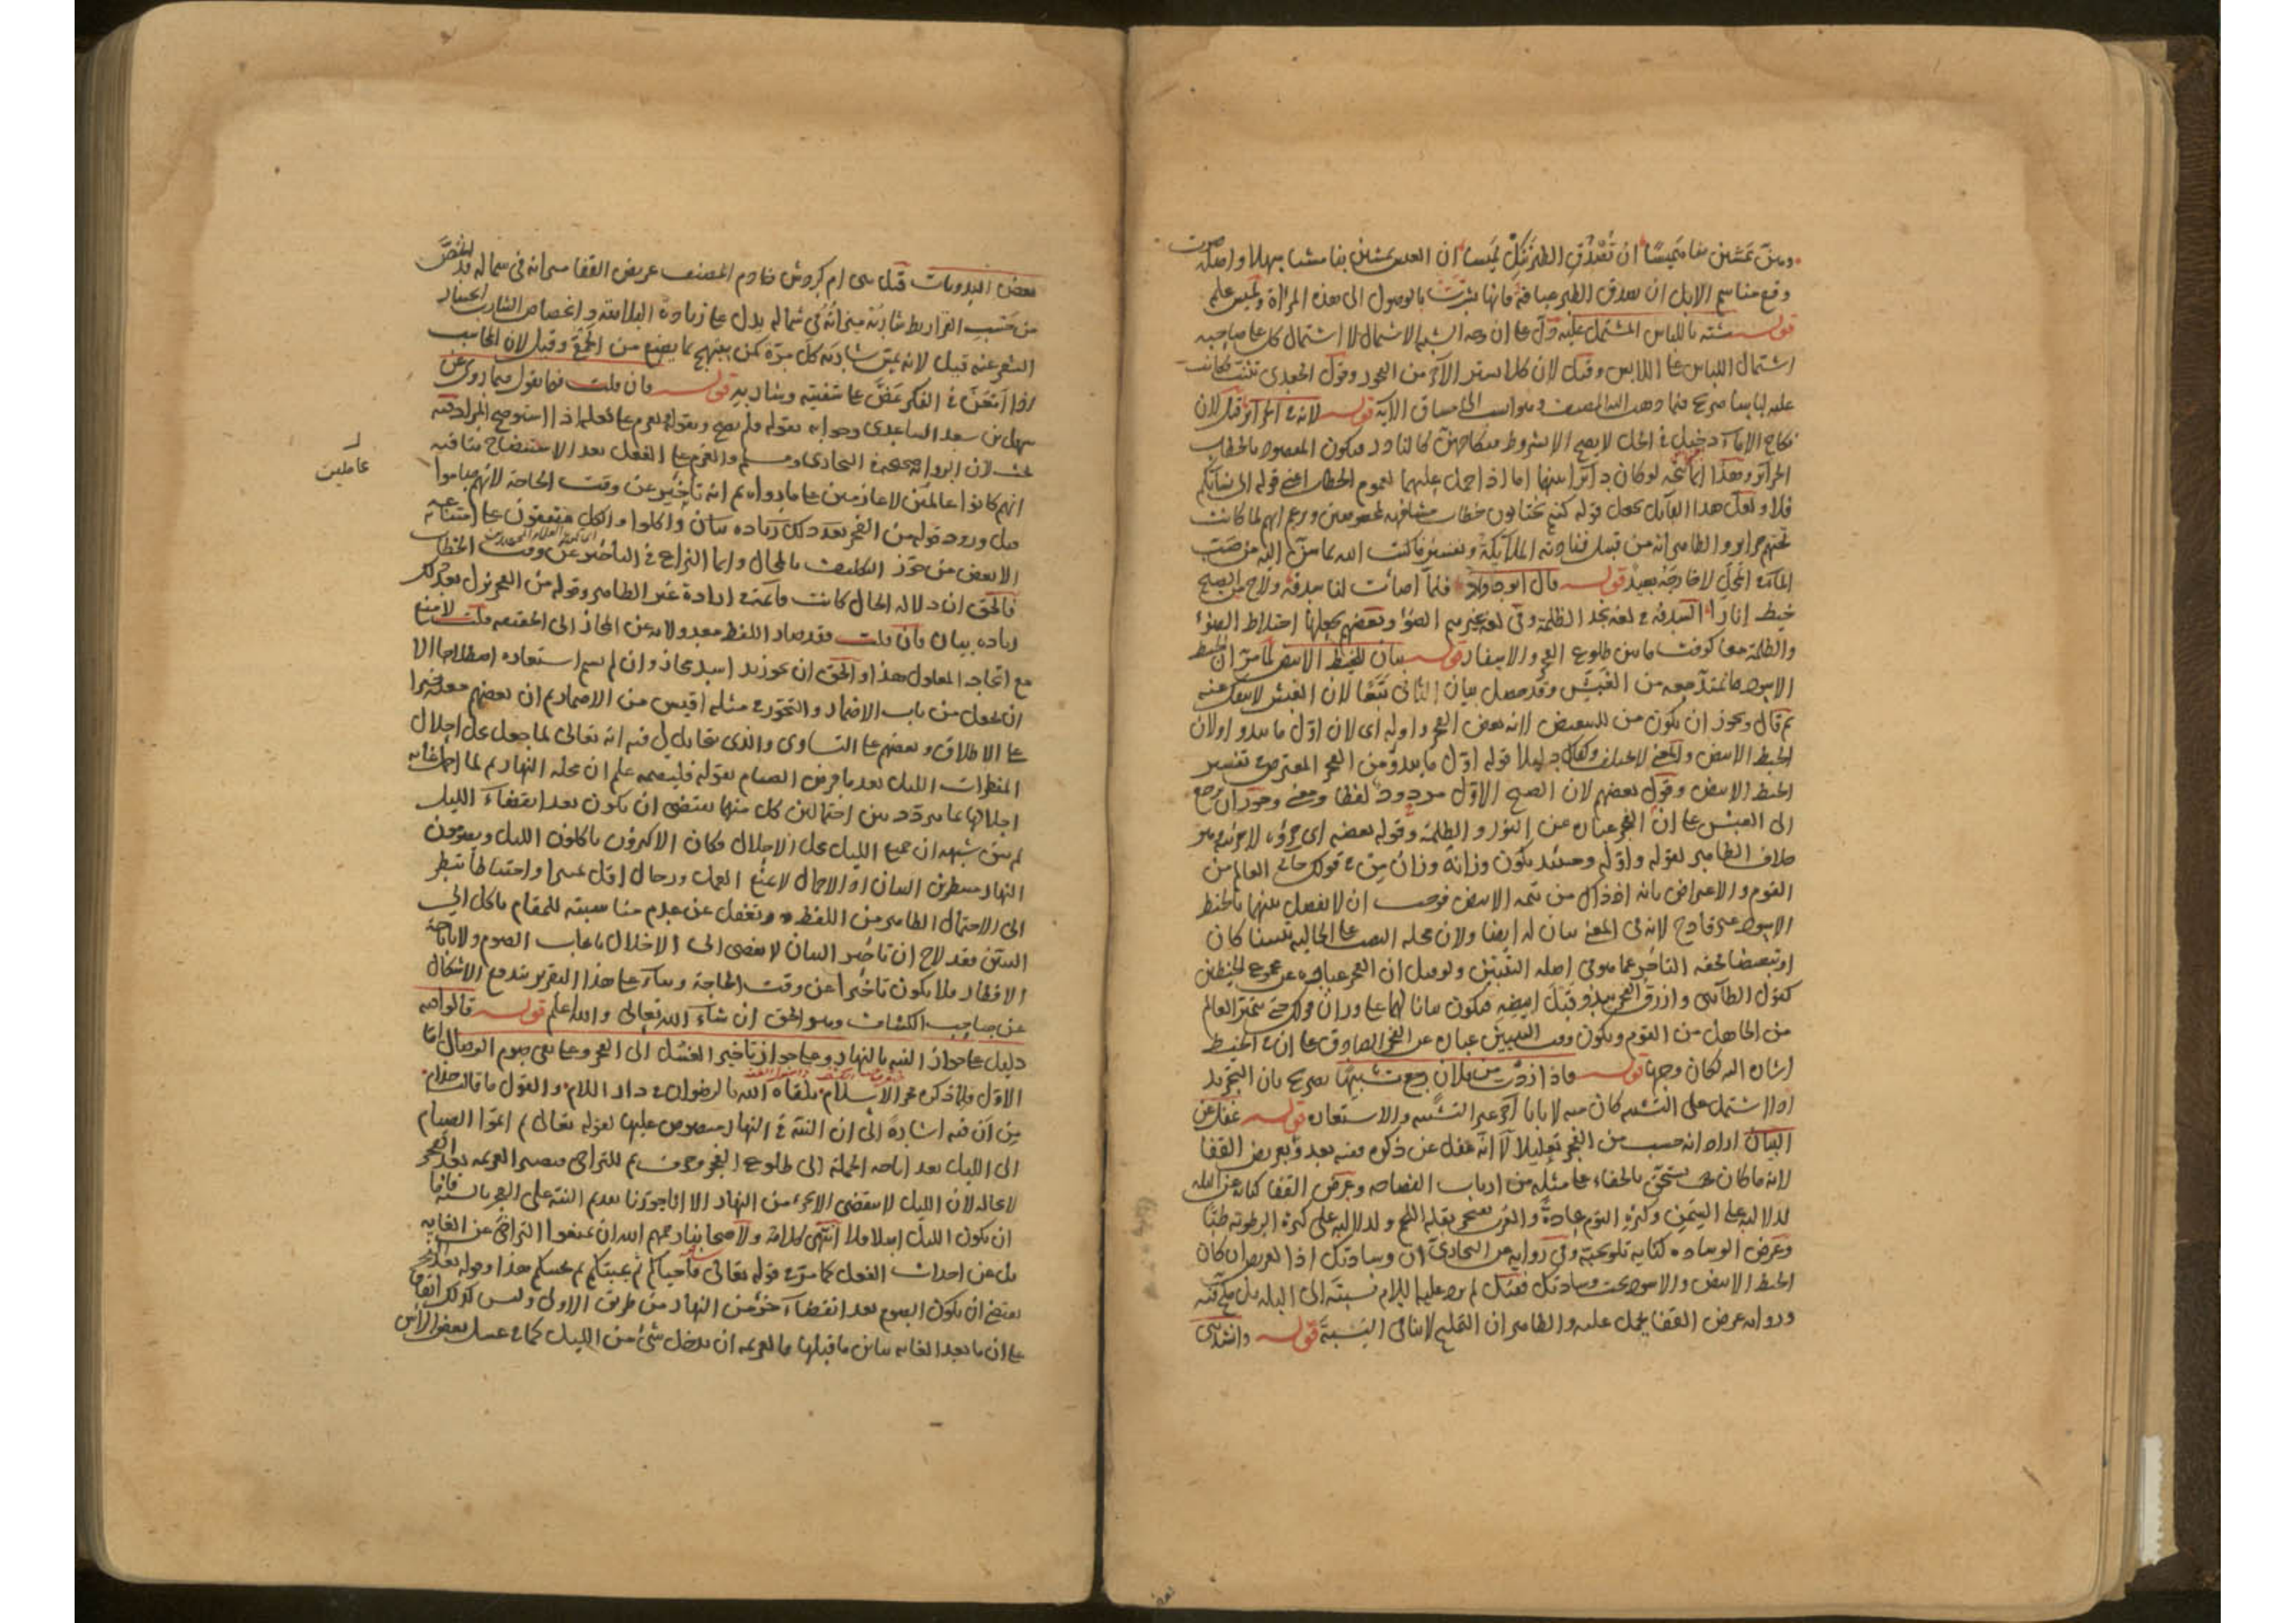 وهن تمشين بنا هميسا ان تصدق الطير ننك لميسا ان العيس تمشين بنا مشيا سهلا واصله صوت
وقع مناسم الابل ان تصدق الطير عيافة فانها بشرت بالوصول الى هذه المراة ولميس علم
قوله شبه باللباس المشتمل عليه دل على ان وجه الشبه الاشتمال لا اشتمال كل على صاحبه
اشتمال اللباس على اللابس وقيل لان كلا ستر الآخر من الفجور وقول الجعدي تثنت فكانت
عليه لباسا صريح فيما ذهب اليه المصنف وهو انسب الى مساق الآية قوله لانه في الحرائر قيل لان
نكاح الاماء دخيل في الحل لا يصح الا بشروط فنكاحهن كالنادر فيكون المقصود بالخطاب
الحرائر وهذا انما يتجه لو كان دائرا بينهما اما اذا حمل عليهما لعموم الخطاب اعني قوله الى نسائكم
فلا ولعل هذا القائل يجعل قوله كنتم تختانون خطاب مشافهة لمخصوصين وحرائرهم لما كانت
تحتهم حرائر والظاهر انه من قبيل فنادته الملائكة وتفسير ما كتب الله بما شرع اليه من صب
الماء في المحل لا خارجه بعيد قوله قال ابو داود فلما اضاءت لنا سدفة ولاح من الصبح
خيط انارا السدفة في لغة نجد الظلمة وفي لغة غيرهم الضوء وبعضهم يجعلها اختلاط الضوء
والظلمة معا كوقت ما بين طلوع الفجر والاسفار قوله بيان للخيط الابيض لما مر ان الخيط
الاسود ما يمتد معه من الغبش وقد حصل بيان الثاني تبعا لان الغبش لا ينفك عنه
ثم قال ويجوز ان يكون من للتبعيض لانه بعض الفجر واوله اي لان اول ما يبدو اولان
الخيط الابيض والمعنى لا يختلف وكفاك دليلا قوله اول ما يبدو من الفجر المعترض في تفسير
الخيط الابيض وقول بعضهم لان الصبح الاول مردود لفظا ومعنى وجوز ان يرجع
الى الغبش على ان الفجر عبارة عن النور والظلمة وقوله بعضه اي جزؤه لا جزئيه هو
خلاف الظاهر لقوله واوله وحينئذ يكون وزانه وزان من في قولك جاءني العالم من
القوم والاعتراض بانه اذ ذاك من تتمة الابيض فوجب ان لا يفصل بينهما بالخيط
الاسود غير قادح لانه في المعنى بيان له ايضا ولان محله النصب على الحالية تبيينا كان
او تبعيضا فحقه التاخير عما هو في اصله التبيين ولو قيل ان الفجر عبارة عن مجموع الخيطين
كقول الطائي وازرق الفجر يبدو قبل ابيضه فيكون بيانا لهما على وزان قولك حتى يتميز العالم
من الجاهل من القوم ويكون وقت التبيين عبارة عن الفجر الصادق على ان في الخيط
اشارة اليه لكان وجها قوله فاذا زدت من فلان رجع تشبيها تصريح بان التجريد
اذا اشتمل على التشبيه كان منه لا بابا آخر غير التشبيه والاستعارة قوله غفل عن
البيان اراد انه حسب من الفجر تعليلا لا انه غفل عن ذكره معه بعد وتعريض القفا
لانه ما كان يستحق بالخفاء على مثله من ارباب الفصاحة وعرض القفا كناية عن البله
لدلالته على السمن وكثرة النوم عادة والذي يشعر بقلة الفهم ولدلالته على كثرة الرطوبة طبا
وعرض الوسادة كناية تلويحية وفي رواية عن البخاري ان وسادتك اذا لعريض ان كان
الخيط الابيض والاسود تحت وسادتك فعلى لم يرد عليه السلام نسبته الى البله بل ملحة
ورواية عرض القفا يحمل عليه والظاهر ان التمليح لا ينافي النسبة قوله وانشدني
بعض البدويات قيل هي ام كردوس خادم المصنف عريض القفا ميزانه في شماله قد انحص
من حسب القراريط شاربه ميزانه في شماله يدل على زيادة البلاهة وانحصاص الشارب انحسار
الشعر عنه قيل لانه يمس شاربه كل مرة كمن يبتهج بما يصنع من الحمق وقيل لان الحاسب
اذا امعن في الفكر عض على شفتيه وشاربه قوله فان قلت فما تقول فيما روي عن
سهل بن سعد الساعدي وجوابه بقوله فلم يصح وبقوله ويعزم على فعله اذا استوضح المراد منه
بحث لان الرواية صحيحة في البخاري ومسلم والعزم على الفعل بعد الاستيضاح ينافيه
انهم كانوا عالمين لا عازمين على ما رواه ثم انه تاخير عن وقت الحاجة لانهم صاموا
عاملين
قبل ورود قوله من الفجر بعد ذلك زيادة بيان واكلوا والكل متفقون على امتناعه
الا بعض من جوز التكليف بالمحال وانما النزاع في التاخير عن وقت الخطاب
فالحق ان دلالة الحال كانت قائمة في ارادة غير الظاهر وقوله من الفجر نزل بعد ذلك
زيادة بيان فان قلت فقد صار اللفظ معدولا به عن المجاز الى الحقيقة قلت لا منع
مع اتحاد المعلول هذا والحق ان نحو زيد اسد مجاز وان لم يسم استعارة اصطلاحا الا
ان يجعل من باب الاضمار والتجوز في مثله اقيس من الاضمار ثم ان بعضهم جعله خيرا
على الاطلاق وبعضهم على التساوي والذي يتخايل لي فيه انه تعالى لما جعل محل احلال
المفطرات الليل بعد ما فرض الصيام بقوله فليصمه علم ان محله النهار ثم لما احل غايه
احلالها عامة مترددة بين احتمالين كل منهما يقتضي ان يكون بعد انقضاء الليل
لم يبق شبهة ان جميع الليل محل الاحلال فكان الاكثرون ياكلون الليل ويصومون
النهار منتظرين البيان اذ الاجمال لا يمنع العمل ورجال اقل عسرا واحتياطا ينظر
الى الاحتمال الظاهر من اللفظ ويغفل عن عدم مناسبته للمقام ياكل الى
التبين فقد لاح ان تاخير البيان لا يفضي الى الاخلال بايجاب الصوم ولا باباحة
الافطار فلا يكون تاخيرا عن وقت الحاجة وبناء على هذا التقرير يندفع الاشكال
عن صاحب الكشاف وهو الحق ان شاء الله تعالى والله اعلم قوله قالوا فيه
دليل على جواز النية بالنهار وعلى جواز تاخير الغسل الى الفجر وعلى نفي صوم الوصال اما
الاول فلما ذكره فخر الاسلام تلقاه الله بالرضوان في دار السلام والقول ما قالت حذام
من ان فيه اشارة الى ان النية في النهار منصوص عليها لقوله تعالى ثم اتموا الصيام
الى الليل بعد اباحة الجملة الى طلوع الفجر وحرف ثم للتراخي فتصير العزيمة بعد الفجر
لا محالة لان الليل لا ينقضي الا بجزء من النهار الا انا جوزنا تقديم النية على الفجر بالسنة فاما
ان يكون الليل اصلا فلا انتهى كلامه ولاصحابنا رحمهم الله ان يمنعوا التراخي عن الغاية
بل عن احداث الفعل كما مر في قوله تعالى فاحياكم ثم يميتكم ثم يحييكم هذا وقوله بعد الفجر
يقتضي ان يكون الصوم بعد انقضاء جزء من النهار من طريق الاولى وليس كذلك اتفاقا
على ان ما بعد الغاية يباين ما قبلها فالعزيمة ان يدخل شيء من الليل كما في غسل بعض الراس